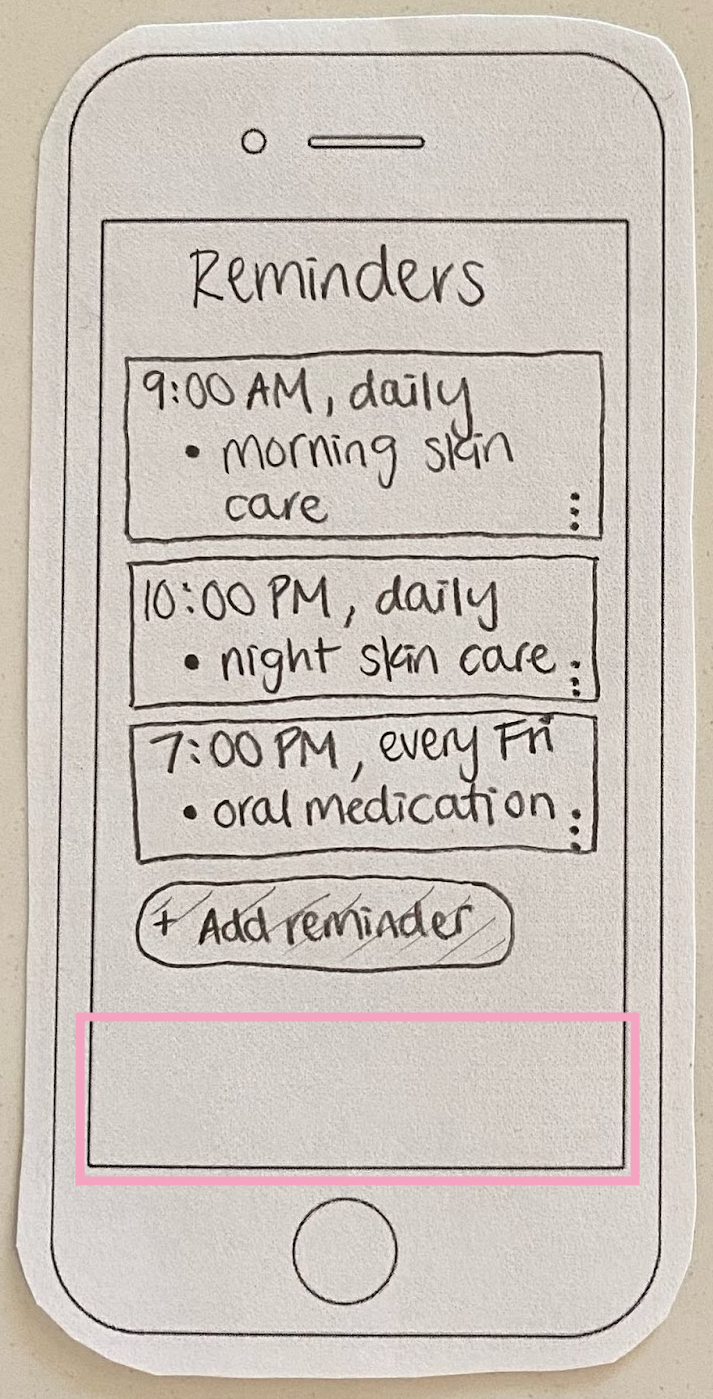 Reminders
9:00 AM, daily
• morning skin
care
10:00 PM, daily
• night skin care
7:00 PM, every Fri
• oral medication
+ Add reminder